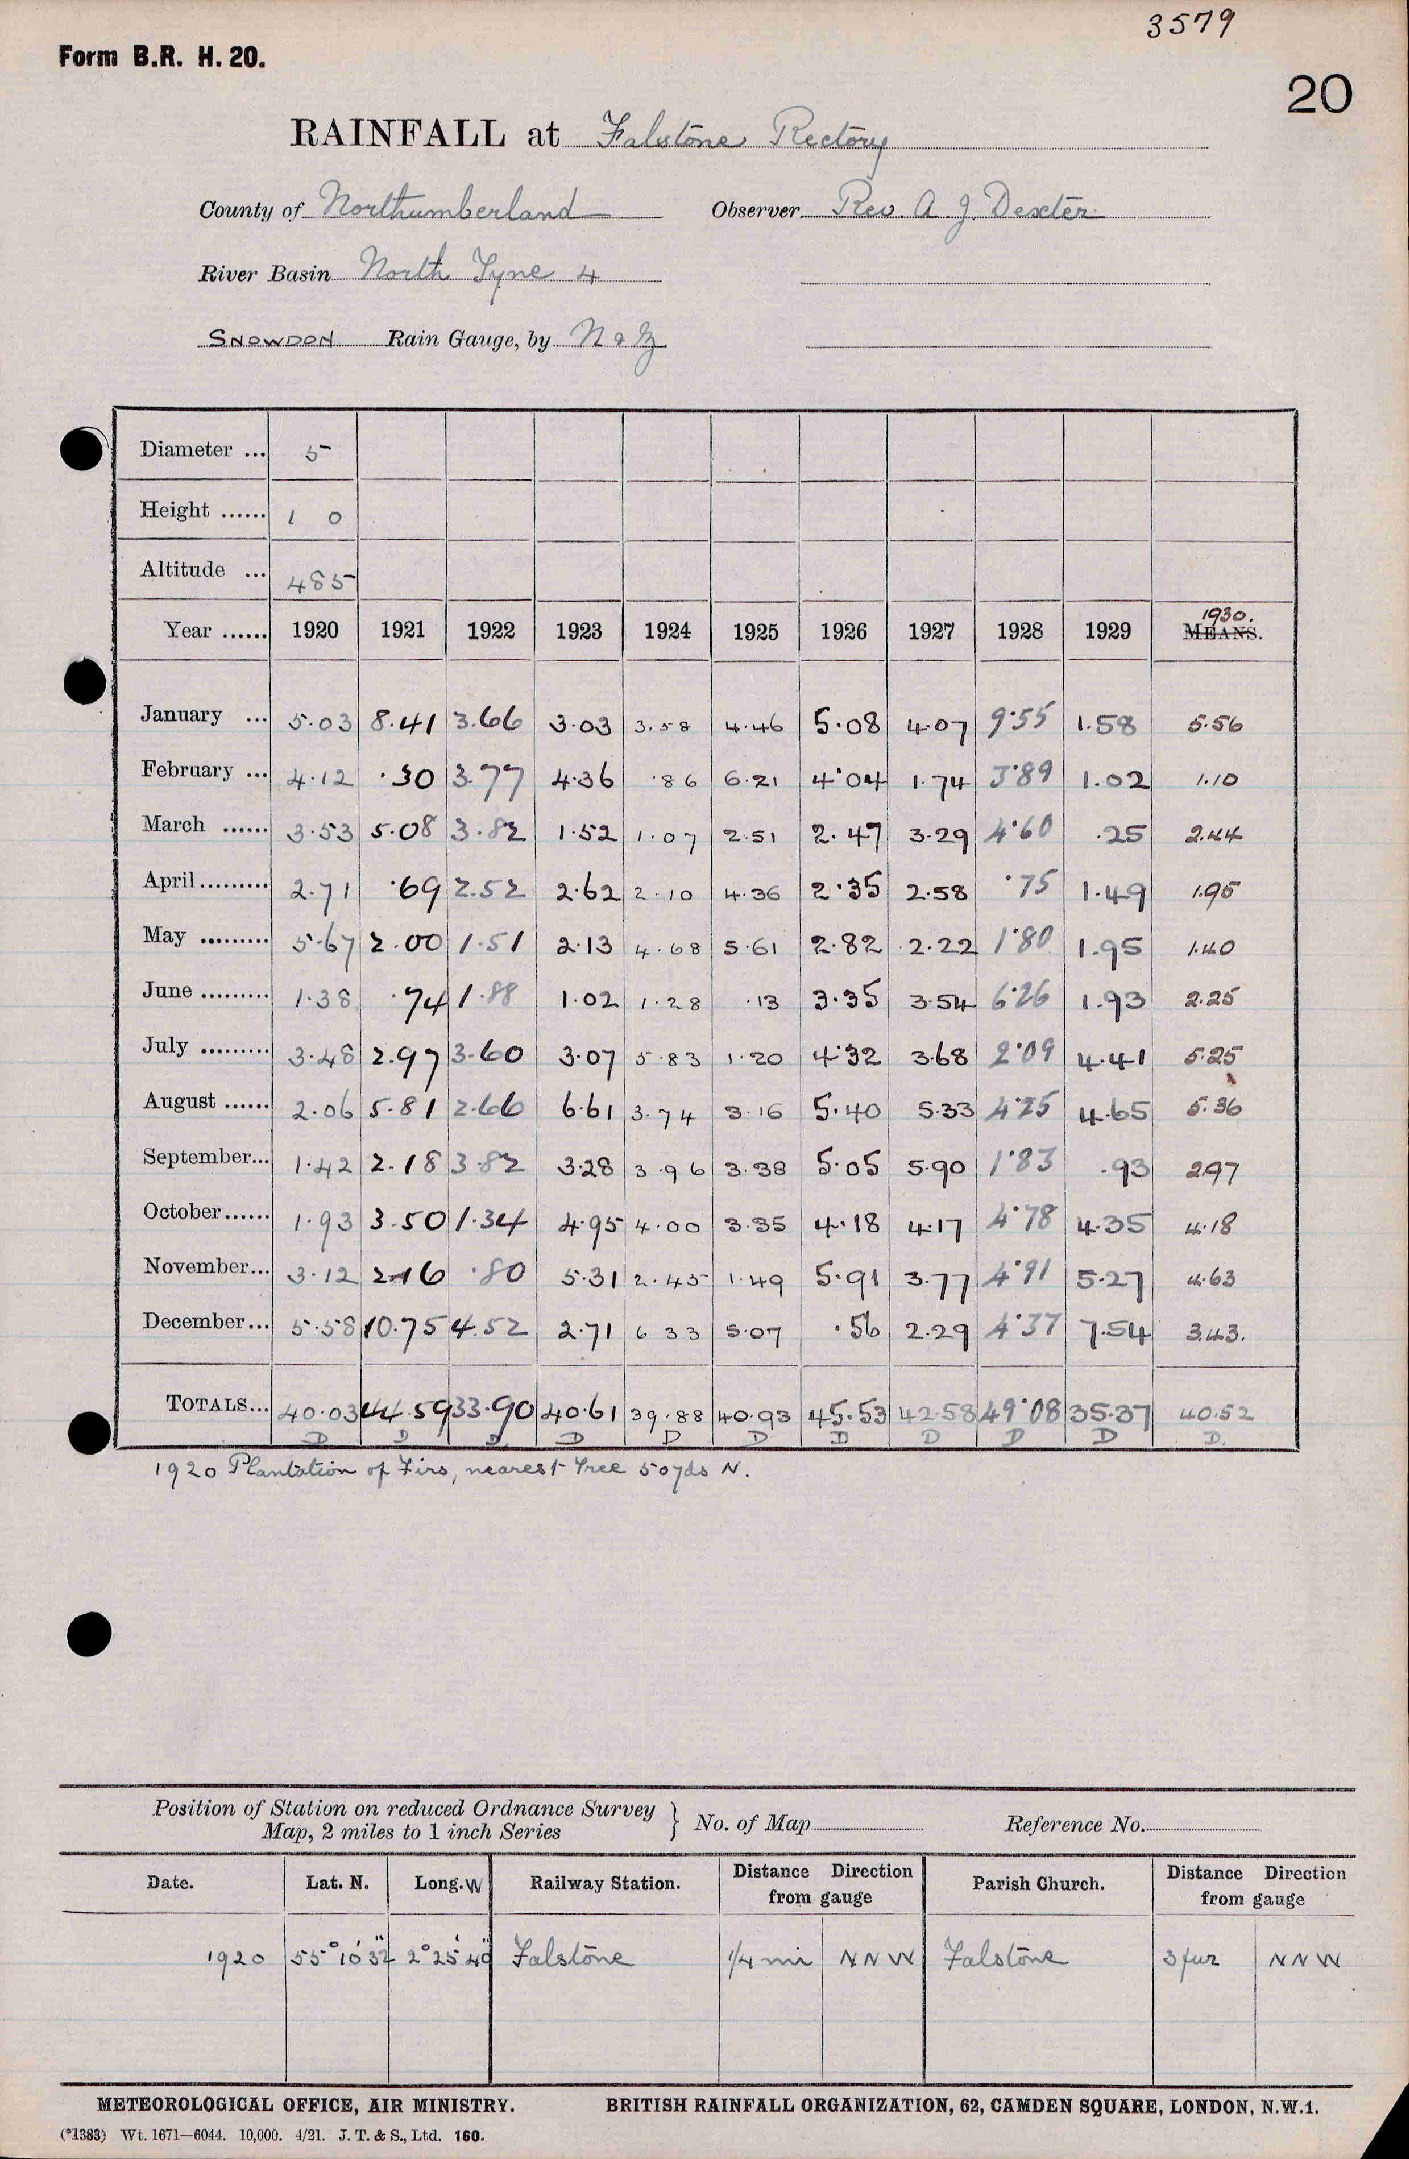 3579
Form B.R. H. 20.
20
RAINFALL at Falstone Rectory
County of Northumberland Observer Rev. A. J. Dexter
River Basin North Tyne 4
SNOWDON Rain Gauge, by N & Z
Diameter ... 5
Height ...... 1 0
Altitude ... 485
Year ...... 1920 1921 1922 1923 1924 1925 1926 1927 1928 1929 1930. MEANS.
January ... 5.03 8.41 3.66 3.03 3.58 4.46 5.08 4.07 9.55 1.58 5.56
February ... 4.12 .30 3.77 4.36 .86 6.21 4.04 1.74 3.89 1.02 1.10
March ...... 3.53 5.08 3.82 1.52 1.07 2.51 2.47 3.29 4.60 .25 2.44
April ......... 2.71 .69 2.52 2.62 2.10 4.36 2.35 2.58 .75 1.49 1.95
May ......... 5.67 2.00 1.51 2.13 4.68 5.61 2.82 2.22 1.80 1.95 1.40
June ......... 1.38 .74 1.88 1.02 1.28 .13 3.35 3.54 6.26 1.93 2.25
July ......... 3.48 2.97 3.60 3.07 5.83 1.20 4.32 3.68 2.09 4.41 5.25
August ...... 2.06 5.81 2.66 6.61 3.74 3.16 5.40 5.33 4.25 4.65 5.36
September... 1.42 2.18 3.82 3.28 3.96 3.38 5.05 5.90 1.83 .93 2.97
October...... 1.93 3.50 1.34 4.95 4.00 3.35 4.18 4.17 4.78 4.35 4.18
November... 3.12 2.16 .80 5.31 2.45 1.49 5.91 3.77 4.91 5.27 4.63
December... 5.58 10.75 4.52 2.71 6 33 5.07 .56 2.29 4.37 7.54 3.43.
TOTALS... 40.03 44.59 33.90 40.61 39.88 40.93 45.53 42.58 49.08 35.37 40.52
D D D D D D D D D D D.
1920 Plantation of Firs, nearest tree 50yds N.
Position of Station on reduced Ordnance Survey
Map, 2 miles to 1 inch Series } No. of Map Reference No.
Date. Lat. N. Long. W Railway Station. Distance Direction from gauge Parish Church. Distance Direction from gauge
1920 55° 10' 32" 2° 25' 40" Falstone 1/4 mi NNW Falstone 3 fur NNW
METEOROLOGICAL OFFICE, AIR MINISTRY. BRITISH RAINFALL ORGANIZATION, 62, CAMDEN SQUARE, LONDON, N.W.1.
(*1383) Wt. 1671—6044. 10,000. 4/21. J. T. & S., Ltd. 160.